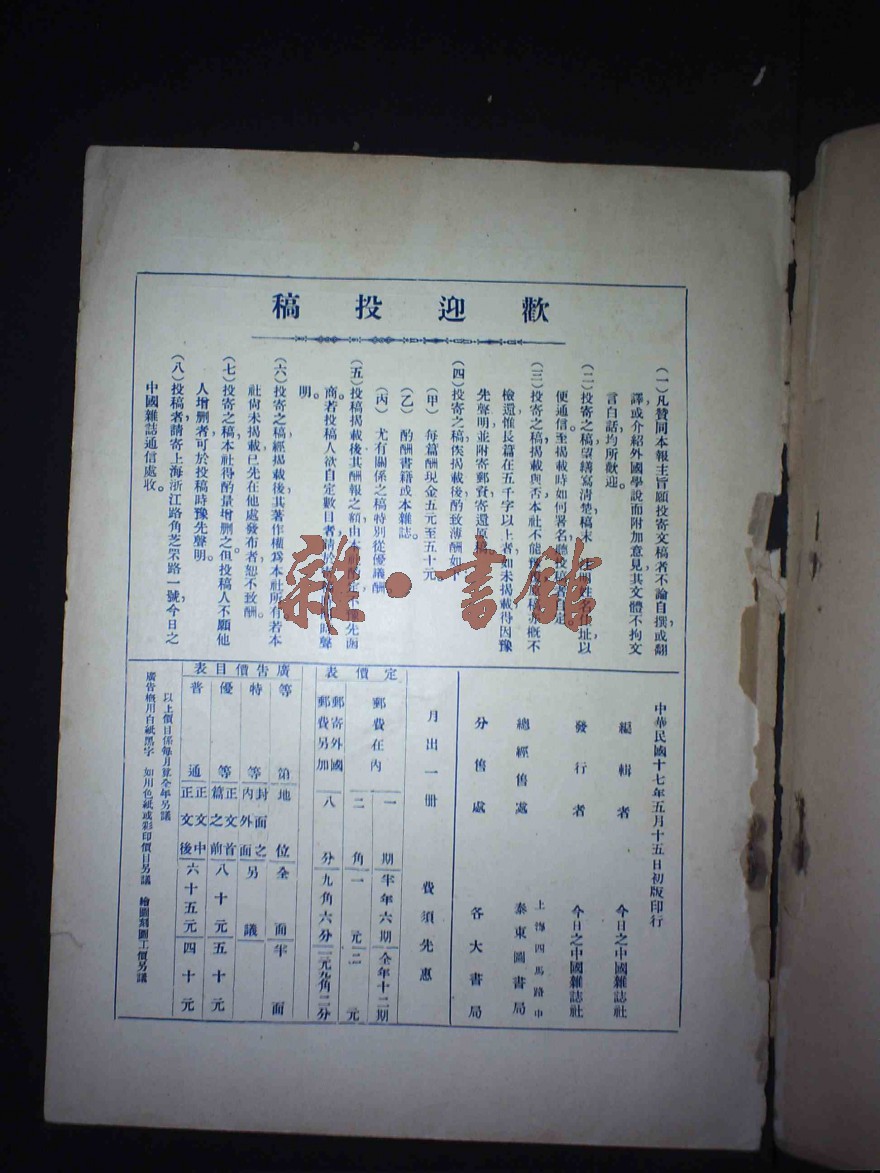 歡迎投稿
（一）凡贊同本報主旨願投寄文稿者，不論自撰或翻
譯，或介紹外國學說而附加意見，其文體不拘文
言白話均所歡迎。
（二）投寄之稿，望繕寫清楚，稿末
便通信。至揭載時如何署名，聽投
（三）投寄之稿，揭載與否，本社不能
檢還。惟長篇在五千字以上者，如未揭載，得因豫
先聲明，並附寄郵資，寄還原稿。
（四）投寄之稿，俟揭載後，酌致薄酬如下
（甲）每篇酬現金五元至五十元
（乙）酌酬書籍或本雜誌。
（丙）尤有關係之稿特別從優議酬
（五）投稿揭載後，其酬報之額，由本社
商。若投稿人欲自定數目者，請
明。
（六）投寄之稿，經揭載後，其著作權爲本社所有，若本
社尚未揭載，已先在他處發布者，恕不致酬。
（七）投寄之稿，本社得酌量增删之。但投稿人不願他
人增删者，可於投稿時豫先聲明。
（八）投稿者請寄上海浙江路角芝罘路一號今日之
中國雜誌通信處收。
雜·書館
中華民國十七年五月十五日初版印行
編輯者 今日之中國雜誌社
發行者 今日之中國雜誌社
總經售處 上海四馬路中 泰東圖書局
分售處 各大書局
月出一册 費須先惠
定價表
一期 半年六期 全年十二期
郵費在內 二角 一元 二元
郵寄外國郵費另加 八分 九角六分 一元九角二分
廣告價目表
等第 地位 全面 半面
特等 封面之內外面 另議
優等 正文首篇之前 八十元 五十元
普通 正文中正文後 六十五元 四十元
以上價目係每月算全年另議
廣告概用白紙黑字 如用色紙或彩印價目另議 繪圖刻圖工價另議